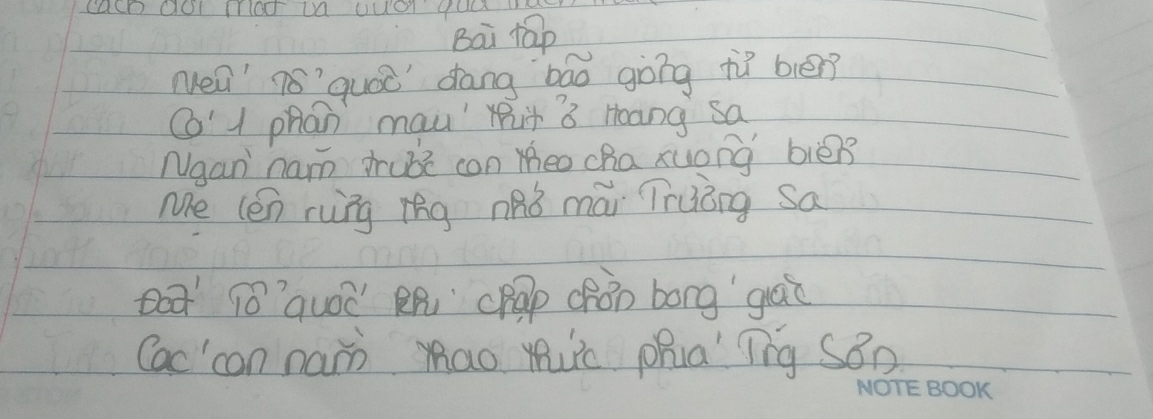 cách đổi mới và vượt qua
Bài tập
Nếu Tổ quốc đang bão giông từ biển
Có 1 phần máu thịt ở Hoàng Sa
Ngàn năm trước con theo cha xuống biển
Mẹ lên rừng thg nhớ mãi Trường Sa
Đất Tổ quốc khi chập chờn bóng giặc
Các con nằm thao thức phía Trg Sơn
NOTE BOOK